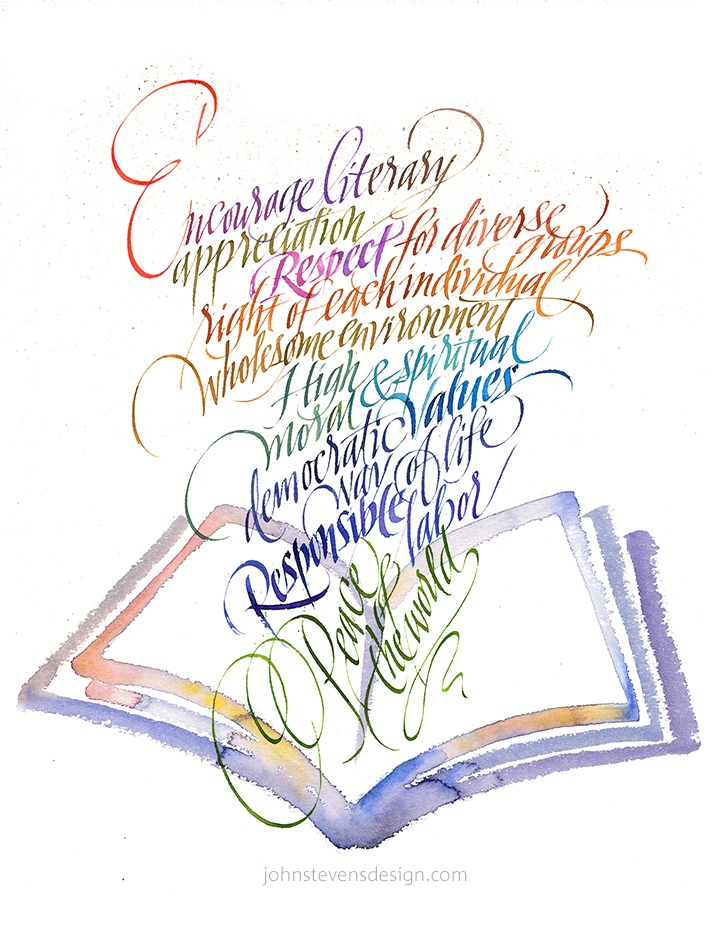 Encourage literary
appreciation
Respect for diverse
groups
right of each individual
wholesome environment
High & spiritual
moral values
democratic
way of life
Responsible
labor
Peace
of
the world
johnstevensdesign.com